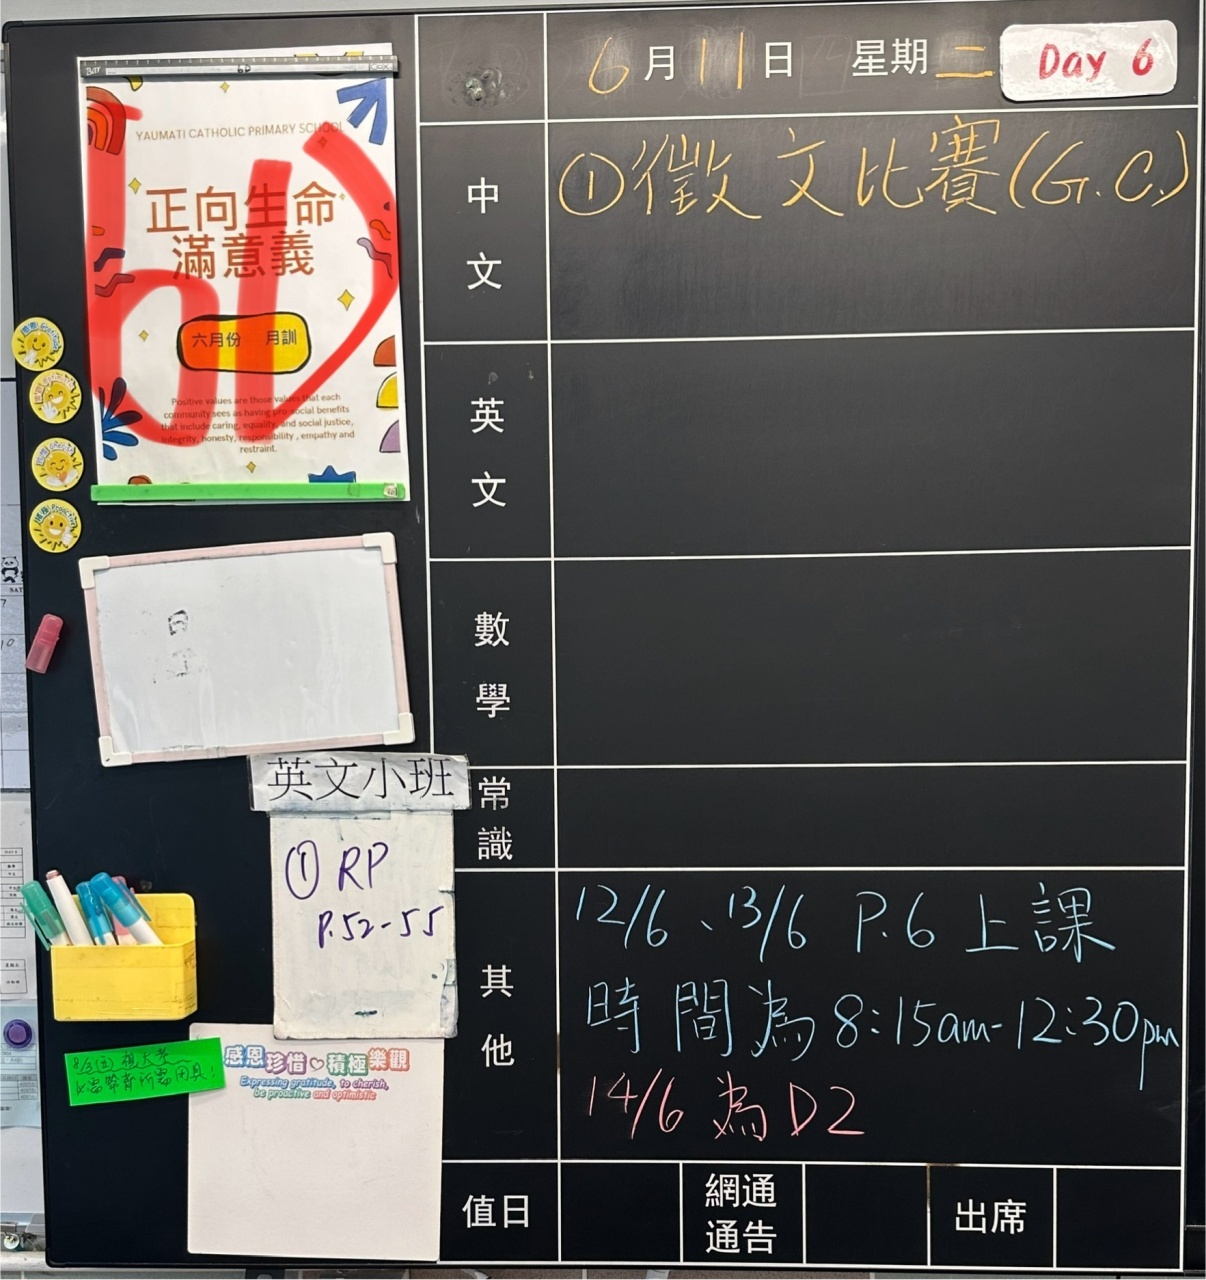 6月11日 星期二 Day 6
中文
①徵文比賽(G.C.)
英文
數學
常識
其他
12/6、13/6 P.6 上課
時間為 8:15am-12:30pm
14/6 為 D2
值日
網通通告
出席
6D
YAUMATI CATHOLIC PRIMARY SCHOOL
正向生命
滿意義
六月份 月訓
Positive values are those values that each
community sees as having pro-social benefits
that include caring, equality, and social justice,
integrity, honesty, responsibility , empathy and
restraint.
6D
英文小班
① RP
P.52-55
感恩珍惜♡積極樂觀
Expressing gratitude, to cherish,
be proactive and optimistic
SAT